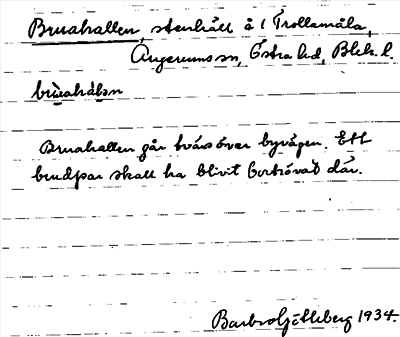 Bruahallen, stenhäll å 1 Trollamåla,
Augerums sn, Östra hd, Blek. l.
Bruahallen går tvärs över byvägen. Ett
brudpar skall ha blivit bortrövat där.
Barbro Götlberg 1934.